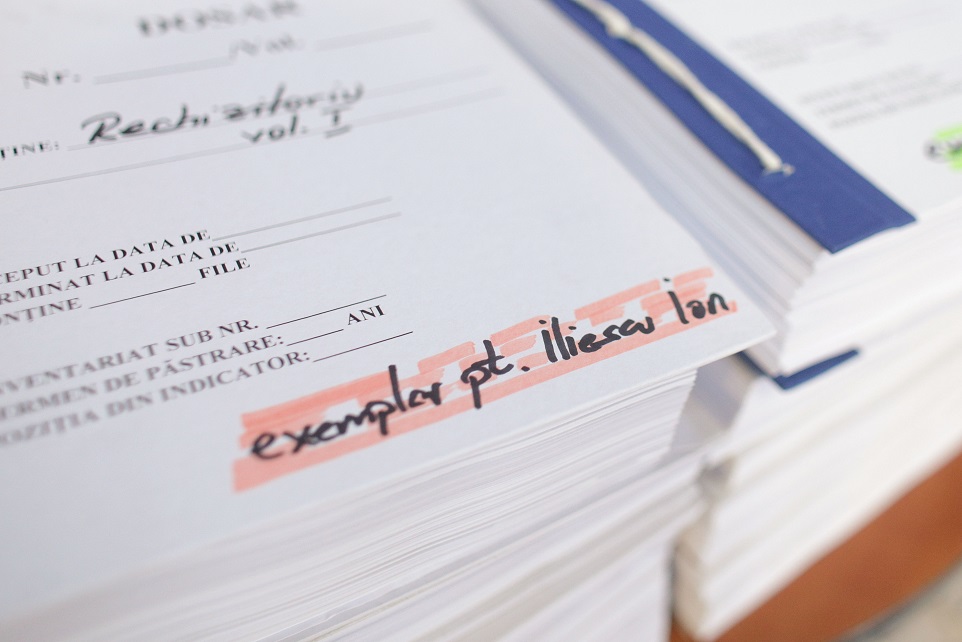 DOSAR
Nr. /Vol.
ȚINE: Rechizitoriu
vol. I
CEPUT LA DATA DE
ERMINAT LA DATA DE
ONȚINE FILE
NVENTARIAT SUB NR.
ERMEN DE PĂSTRARE: ANI
OZIȚIA DIN INDICATOR:
exemplar pt. iliescu ion